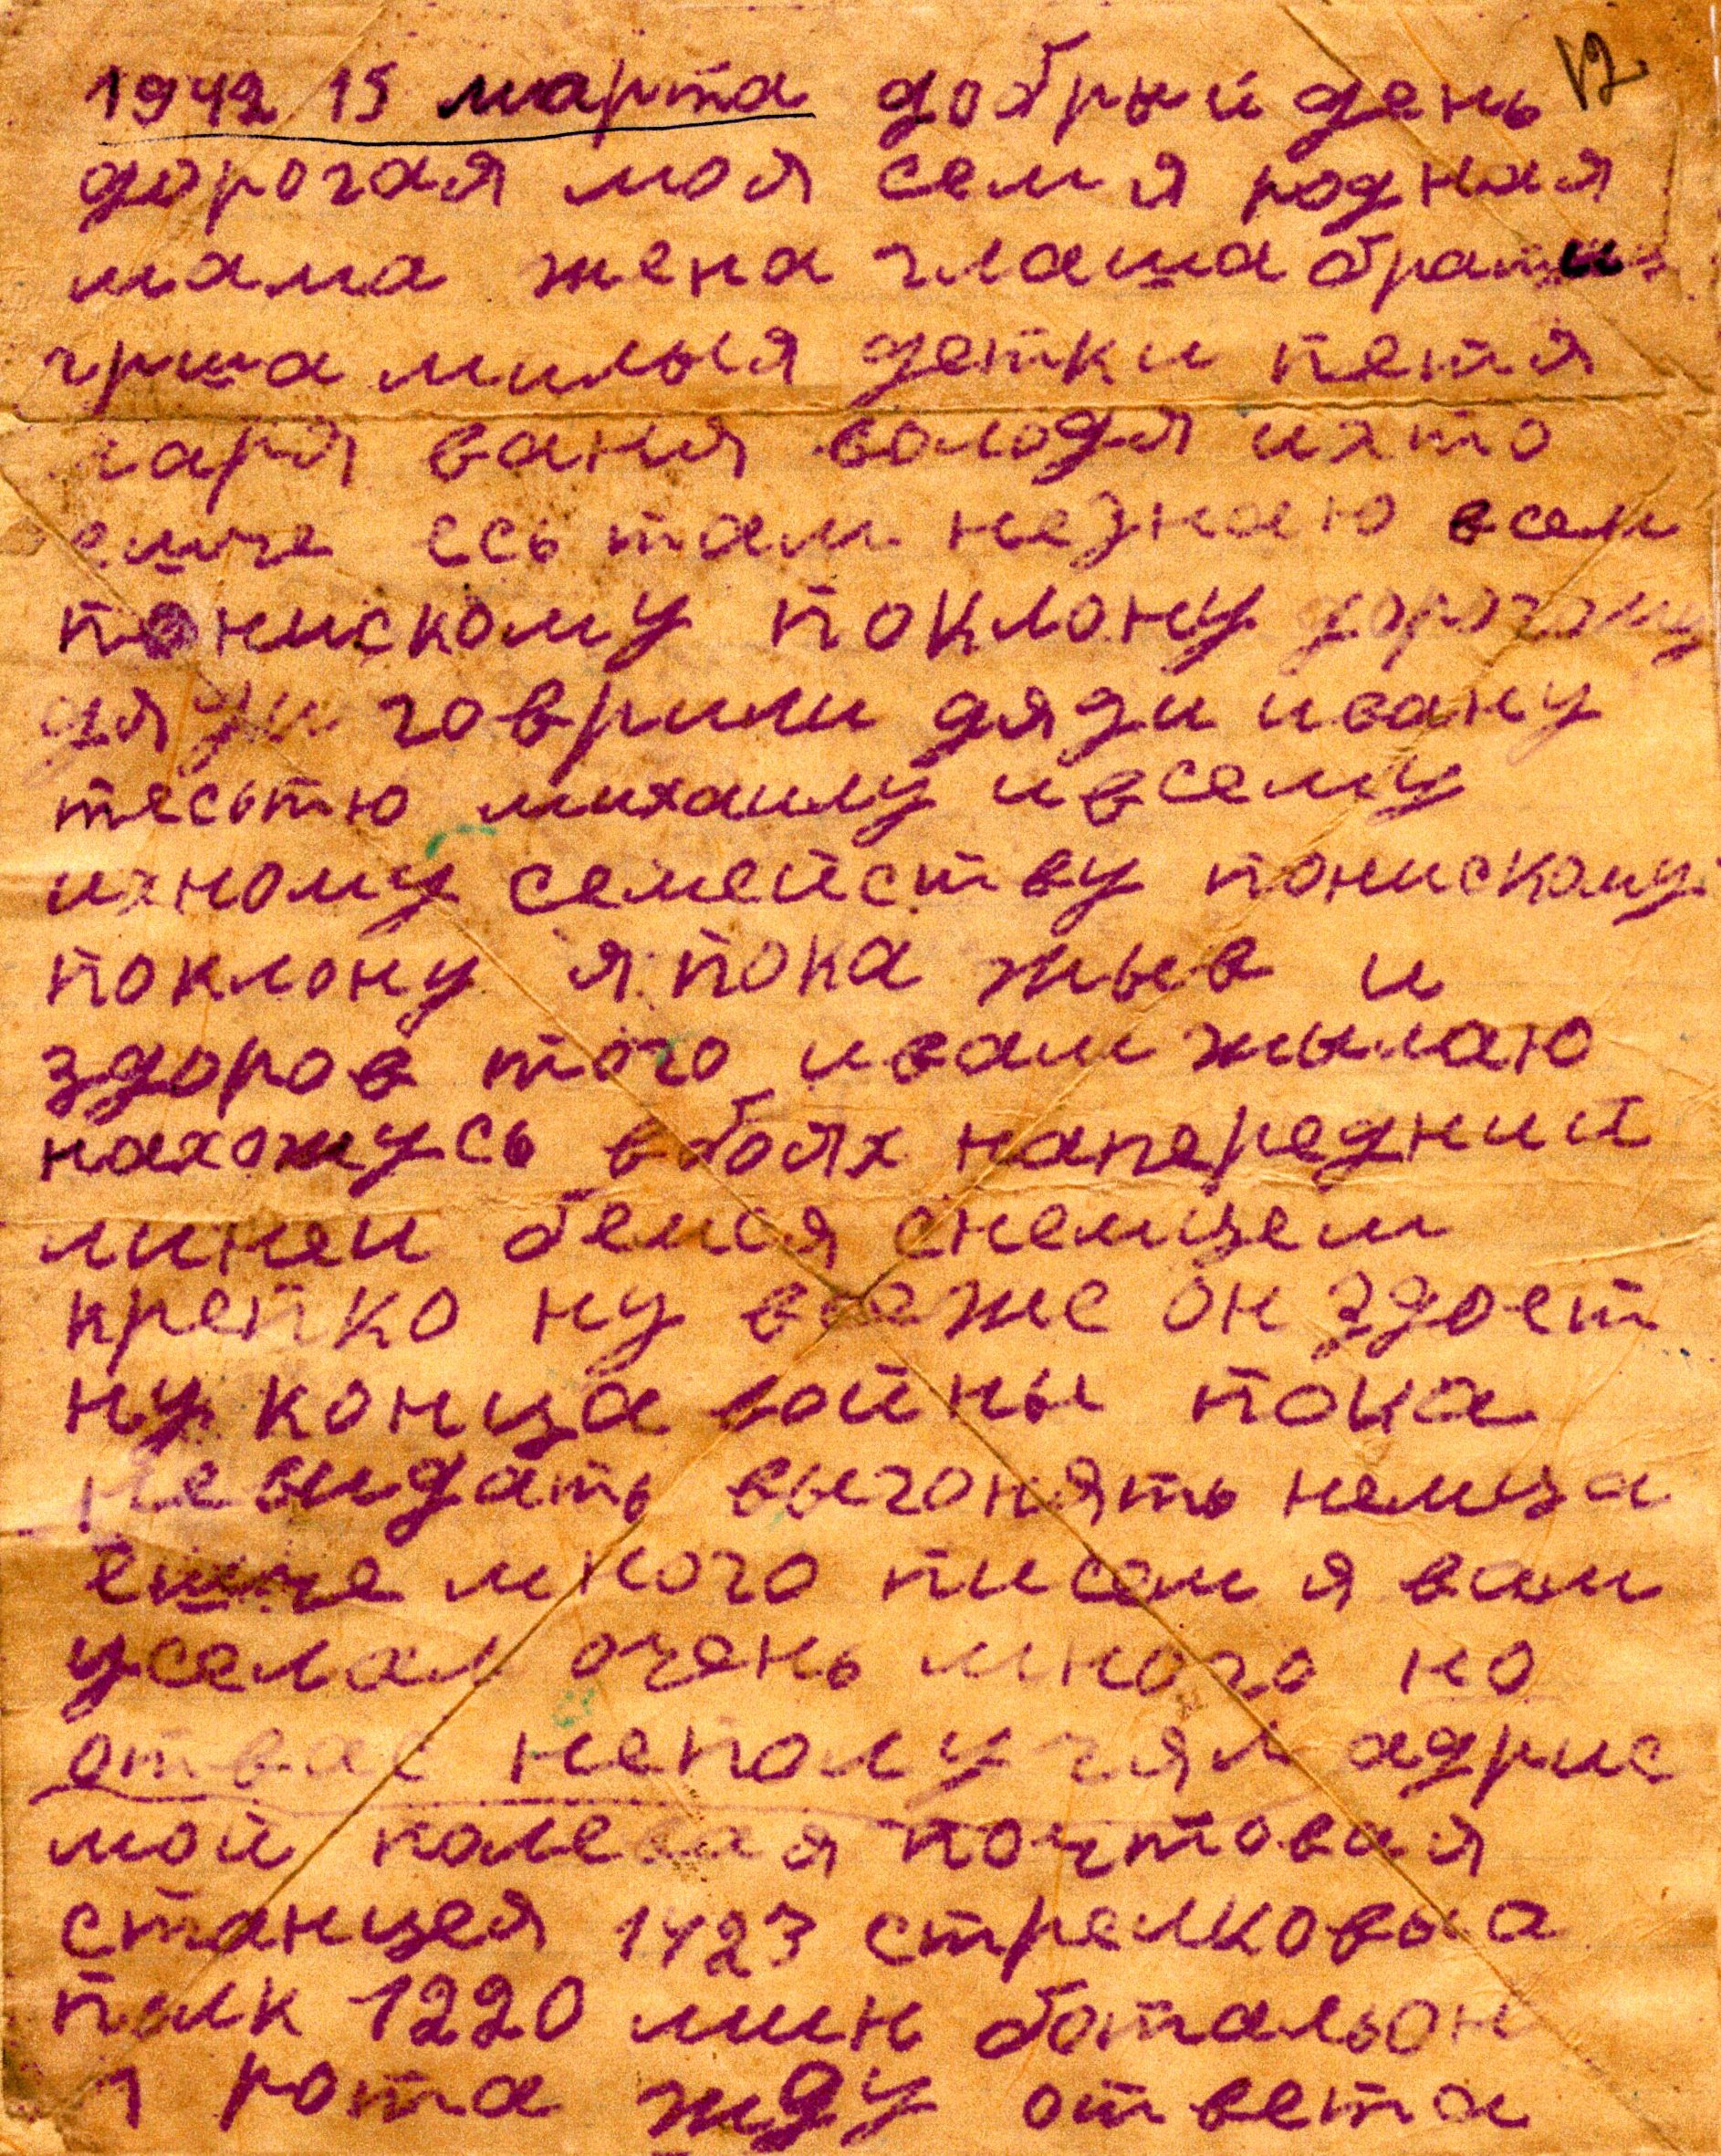 1942 15 марта добрый день 12
дорогая моя семя родная
мама жена глаша брат
гриша милыя детки петя
гаря ваня володя ихто
ешче есь там незнаю всем
понискому поклону дорогому
дяди говрили дяди ивану
тесьтю михаилу ивсему
ихному семейству понискому
поклону я пока жыв и
здоров того ивам жылаю
нахожусь вбоях напередний
линеи бемся снемцем
крепко ну все же он здоет
ну конца войны пока
невидать выгонять немца
ешче много писем я вам
уселал очень много но
отвас неполучял адрис
мой полевая почтовая
станцея 1423 стрелковыа
полк 1220 мин ботальон
1 рота жду ответа